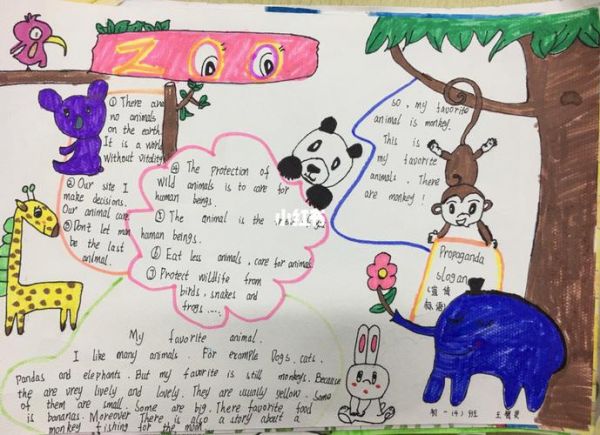 ZOO
① There are
no animals
on the earth.
It is a world
Without vitality
② Our site I
make decisions,
Our animal care.
③ Don't let man
be the last
animal.
④ The protection of
wild animals is to care for
human beings.
⑤ The animal is the
human beings.
⑥ Eat less animals, care for animals
⑦ Protect wildlife from
birds, snakes and
frogs.....
so, my favorite
animal is monkey.
This is
my favorite
animals. There
are monkey!
Propaganda
slogan
(宣传
标语)
My favorite animal.
I like many animals. For example Dogs. cats.
Pandas and elephants. But my favorite is still monkeys. Because
the are vrey lively and lovely. They are usually yellow. Some
of them are small. Some are big. There favorite food
is bananas. Moreover There is also a story about a
monkey fishing for the moon
初一(4)班 王
小红书